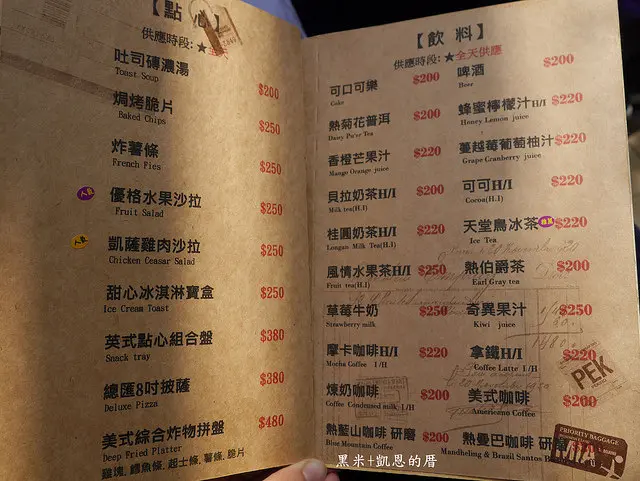 【點心】
供應時段:★
吐司磚濃湯
Toast Soup
$200
焗烤脆片
Baked Chips
$250
炸薯條
French Fies
$250
人氣
優格水果沙拉
Fruit Salad
$250
人氣
凱薩雞肉沙拉
Chicken Ceasar Salad
$250
甜心冰淇淋寶盒
Ice Cream Toast
$250
英式點心組合盤
Snack tray
$380
總匯8吋披薩
Deluxe Pizza
$380
美式綜合炸物拼盤
Deep Fried Platter
$480
雞塊, 鱈魚條, 起士條, 薯條, 脆片
【飲料】
供應時段:★全天供應
可口可樂
Coke
$200
熱菊花普洱
Daisy Pu'er Tea
$200
香橙芒果汁
Mango Orange juice
$220
貝拉奶茶H/I
Milk tea(H.I)
$200
桂圓奶茶H/I
Longan Milk Tea(H.I)
$220
風情水果茶H/I
Fruit tea(H.I)
$250
草莓牛奶
Strawberry milk
$250
摩卡咖啡H/I
Mocha Coffee I/H
$220
煉奶咖啡
Coffee Condensed milk I/H
$200
熱藍山咖啡 研磨
Blue Mountain Coffee
$200
啤酒
Beer
$200
蜂蜜檸檬汁H/I
Honey Lemon juice
$220
蔓越莓葡萄柚汁
Grape Cranberry juice
$220
可可H/I
Cocoa(H.I)
$220
天堂鳥冰茶
Ice Tea
$220
熱伯爵茶
Earl Gray tea
$200
奇異果汁
Kiwi juice
$250
拿鐵H/I
Coffee Latte I/H
$220
美式咖啡
Americano Coffee
$200
熱曼巴咖啡 研
Mandheling & Brazil Santos
PEK
PRIORITY BAGGAGE
MIA
黑米+凱恩的曆